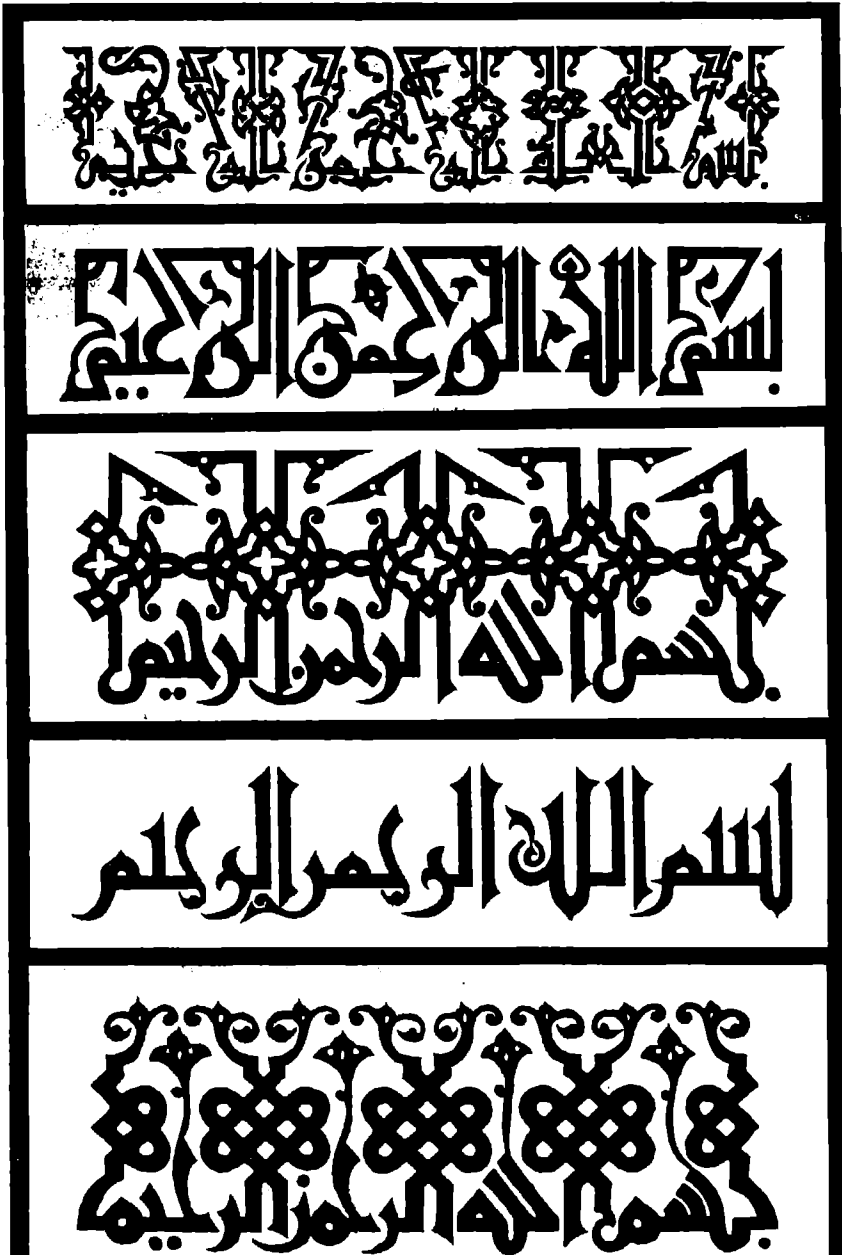 بسم الله الرحمن الرحيم
بسم الله الرحمن الرحيم
بسم الله الرحمن الرحيم
بسم الله الرحمن الرحيم
بسم الله الرحمن الرحيم